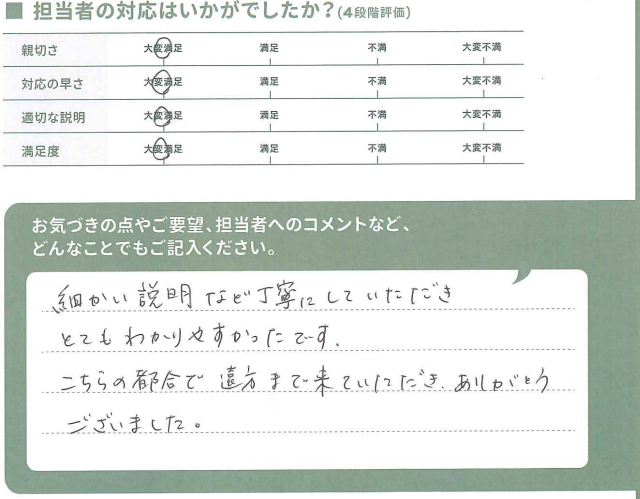 ■ 担当者の対応はいかがでしたか?(4段階評価)
親切さ 大変満足 満足 不満 大変不満
対応の早さ 大変満足 満足 不満 大変不満
適切な説明 大変満足 満足 不満 大変不満
満足度 大変満足 満足 不満 大変不満
お気づきの点やご要望、担当者へのコメントなど、
どんなことでもご記入ください。
細かい説明など丁寧にしていただき
とてもわかりやすかったです.
こちらの都合で遠方まで来ていただき.ありがとう
ございました。